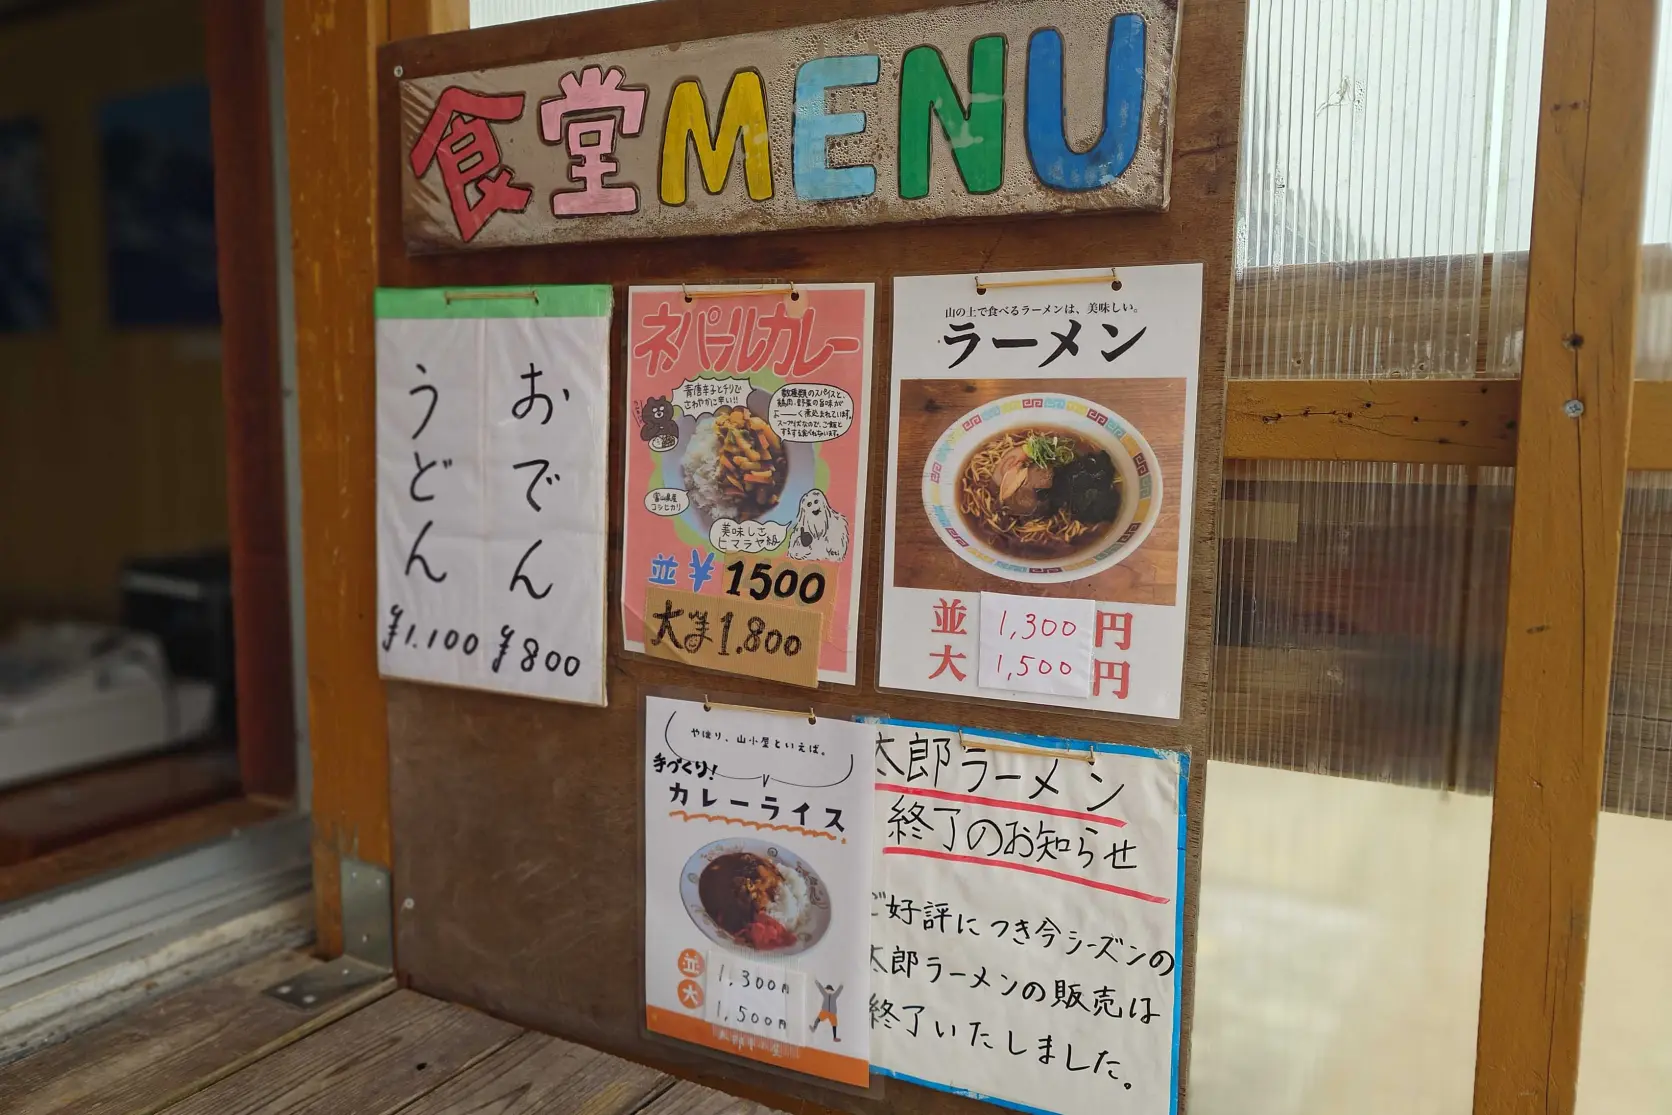 食堂MENU
おでん
¥800
うどん
¥1.100
ネパールカレー
青唐辛子とチリで
さわやかに辛い!!
数種類のスパイスと、
鶏肉、野菜の旨味が
よーく煮込まれています。
スープ状なので、ご飯と
するする食べれちゃいます。
富山県産
コシヒカリ
美味しさ
ヒマラヤ級
Yeti
並¥1500
大¥1.800
山の上で食べるラーメンは、美味しい。
ラーメン
並 1,300円
大 1,500円
やはり、山小屋といえば。
手づくり!
カレーライス
並 1,300円
大 1,500円
太郎ラーメン
終了のお知らせ
ご好評につき今シーズンの
太郎ラーメンの販売は
終了いたしました。